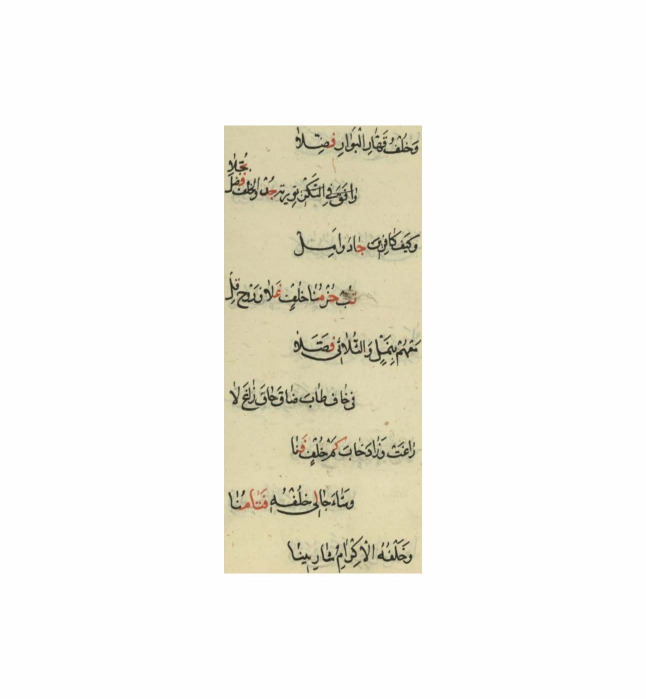 وَخُلْفُ قَهَّارِ الْبَوَارِ فُضِّلَا
جُد والخلف فضل بُجِّلا
وَكَيْفَ كَافِرِينَ جَادَ وَامِلْ
تُبْ حُزْ مُنَا خُلْفٍ غَلَا وَرَوْحُ قُلْ
مَعْهُمْ بِنَمْلٍ وَالثُّلَاثِي فُضِّلَا
فِي خَافَ طَابَ ضَاقَ حَاقَ زَاغَ لَا
زَاغَتْ وَزَادَ خَابَ كَمْ خُلْفٍ فِنَا
وَشَاءَ جَا لِي خُلْفُهُ فَتًى مُنَا
وَخُلْفُهُ الْاِكْرَامِ شَارِبِينَا